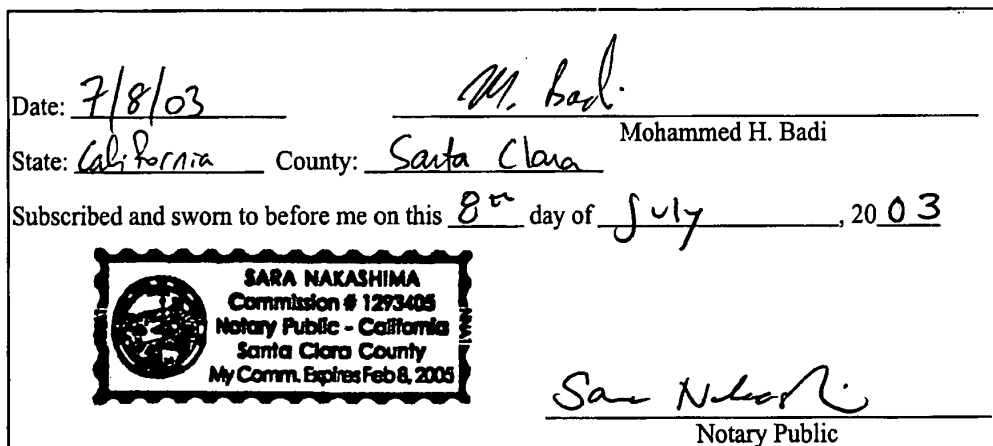 Date: 7/8/03 M. Badi
Mohammed H. Badi
State: California County: Santa Clara
Subscribed and sworn to before me on this 8th day of July, 2003
SARA NAKASHIMA
Commission # 1293405
Notary Public - California
Santa Clara County
My Comm. Expires Feb 8, 2005
Notary Public